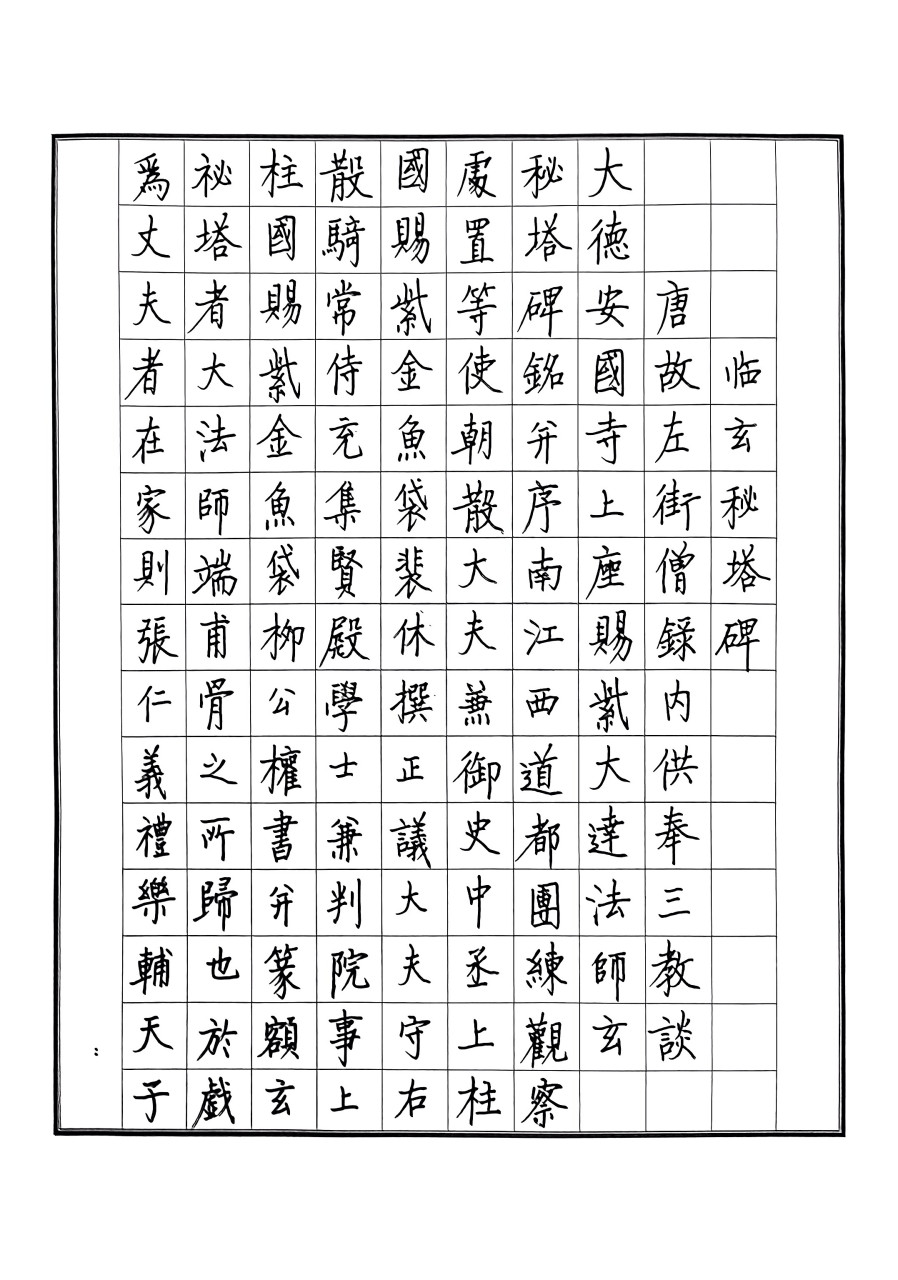 临玄秘塔碑
唐故左街僧錄内供奉三教談
大德安國寺上座賜紫大達法師玄
秘塔碑銘并序南江西道都團練觀察
處置等使朝散大夫兼御史中丞上柱
國賜紫金魚袋裴休撰正議大夫守右
散騎常侍充集賢殿學士兼判院事上
柱國賜紫金魚袋柳公權書并篆額玄
祕塔者大法師端甫骨之所歸也於戲
為丈夫者在家則張仁義禮樂輔天子